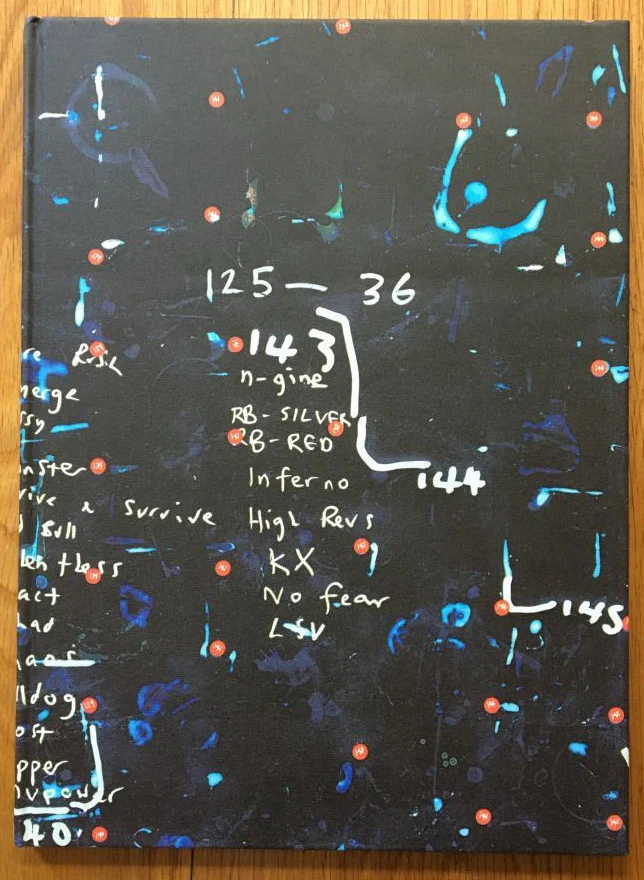 125 — 36
143
n-gine
RB-SILVER
RB-RED
Inferno
High Revs
KX
No fear
LSV
144
145
re
nerge
ssy
nster
rive & Survive
d Bull
lentless
act
had
haos
lldog
ost
pper
40